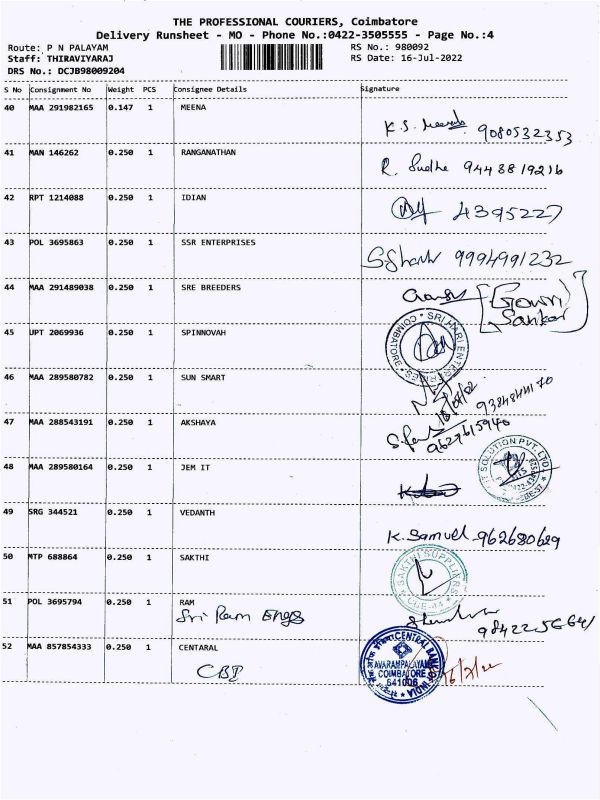 THE PROFESSIONAL COURIERS, Coimbatore
Delivery Runsheet - MO - Phone No.:0422-3505555 - Page No.:4
Route: P N PALAYAM
RS No.: 980092
Staff: THIRAVIYARAJ
RS Date: 16-Jul-2022
DRS No.: DCJB98009204
S No Consignment No Weight PCS Consignee Details Signature
40 MAA 291982165 0.147 1 MEENA
K.S. 9080532353
41 MAN 146262 0.250 1 RANGANATHAN
R. Sudha 9443819216
42 RPT 1214088 0.250 1 IDIAN
4395227
43 POL 3695863 0.250 1 SSR ENTERPRISES
9994991232
44 MAA 291489038 0.250 1 SRE BREEDERS
Gowri
Sankar
45 UPT 2069936 0.250 1 SPINNOVAH
SRI HARI ENTERPRISES * COIMBATORE
46 MAA 289580782 0.250 1 SUN SMART
47 MAA 288543191 0.250 1 AKSHAYA
9627615940
48 MAA 289580164 0.250 1 JEM IT
IT SOLUTION PVT. LTD
49 SRG 344521 0.250 1 VEDANTH
K. Samuel 962680629
50 MTP 688864 0.250 1 SAKTHI
SAKTHI SUPPLIERS
51 POL 3695794 0.250 1 RAM
Sri Ram Enggs
52 MAA 857854333 0.250 1 CENTARAL
CBI
CENTRAL BANK OF INDIA
AVARAMPALAYAM
COIMBATORE
641006
16/7/22